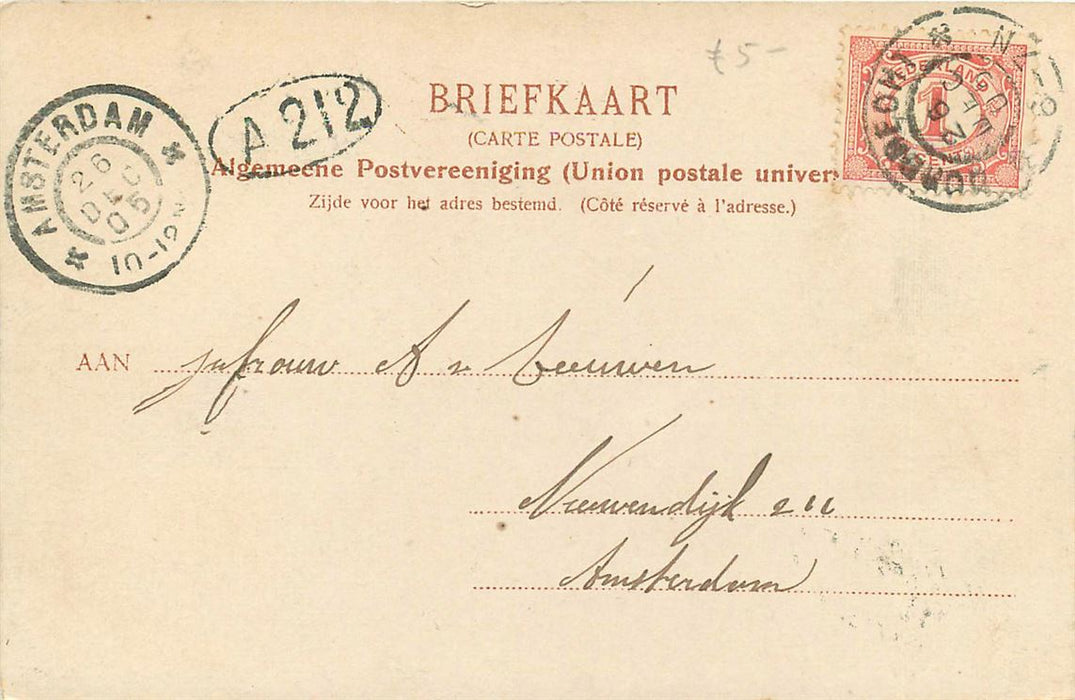 £5-
BRIEFKAART
(CARTE POSTALE)
Algemeene Postvereeniging (Union postale univer
Zijde voor het adres bestemd. (Côté réservé à l'adresse.)
AMSTERDAM
26
DEC
05
10-12N
A 212
NEDERLAND
1
CENT
AAN Jufrouw A v Leeuwen
Nieuwendijk 211
Amsterdam